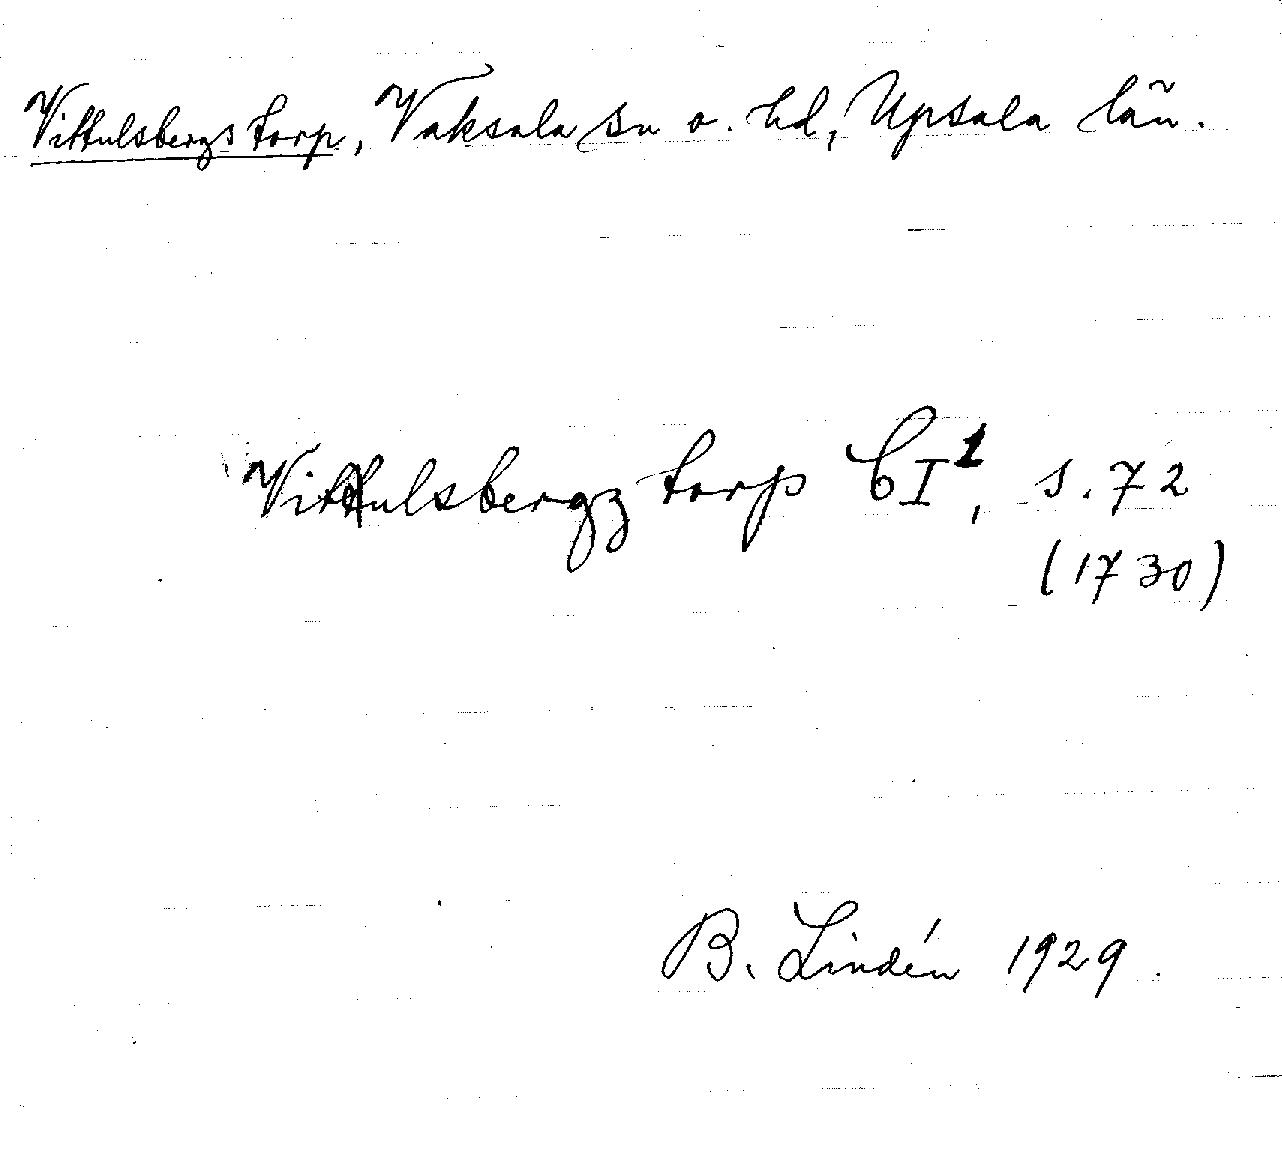 Vittulsbergs torp, Vaksala sn o. hd, Upsala län.
Vittulsbergz torp CI¹, s. 72
(1730)
B. Lindén 1929.